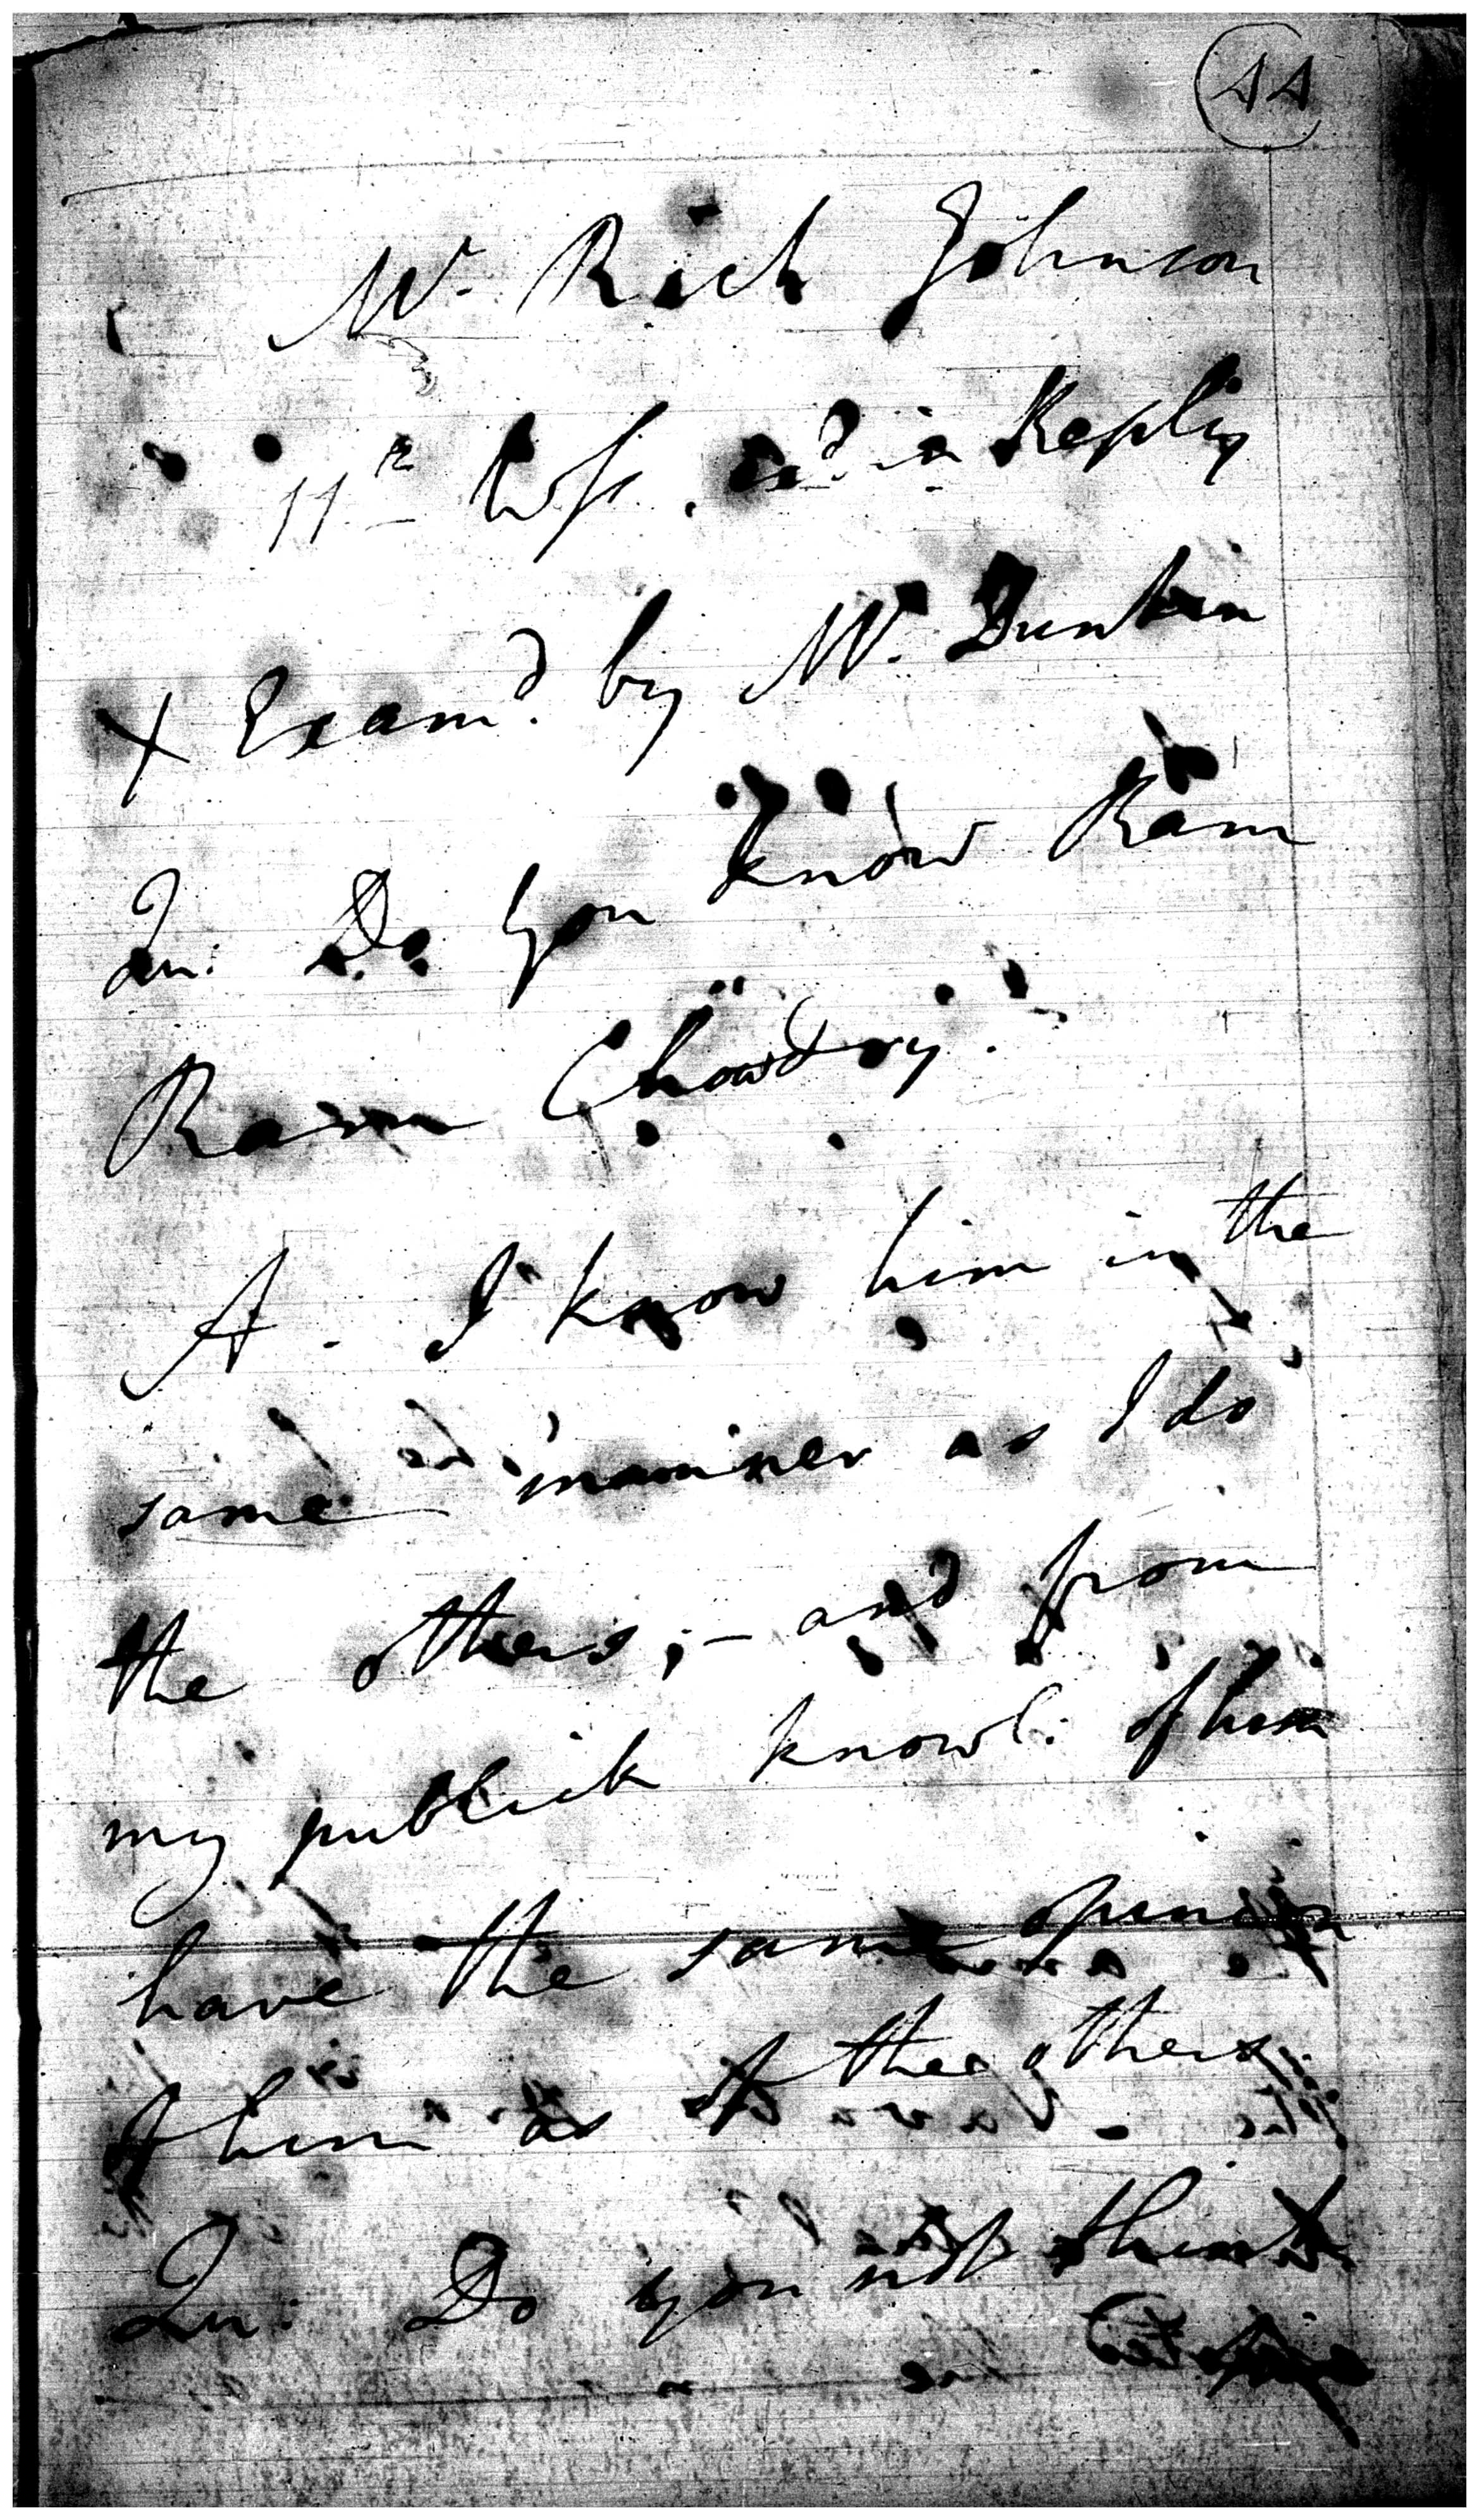 44
Mr. Rich Johnson
11th Wss. in Reply
X Examd. by Mr. Dunkin
Qu: Do you know Ram
Ram Chowdry.
A. I know him in the
same manner as I do
the others; - and from
my publick knowl: of him
have the same opinion
of him as of the others
Qu: Do you not think